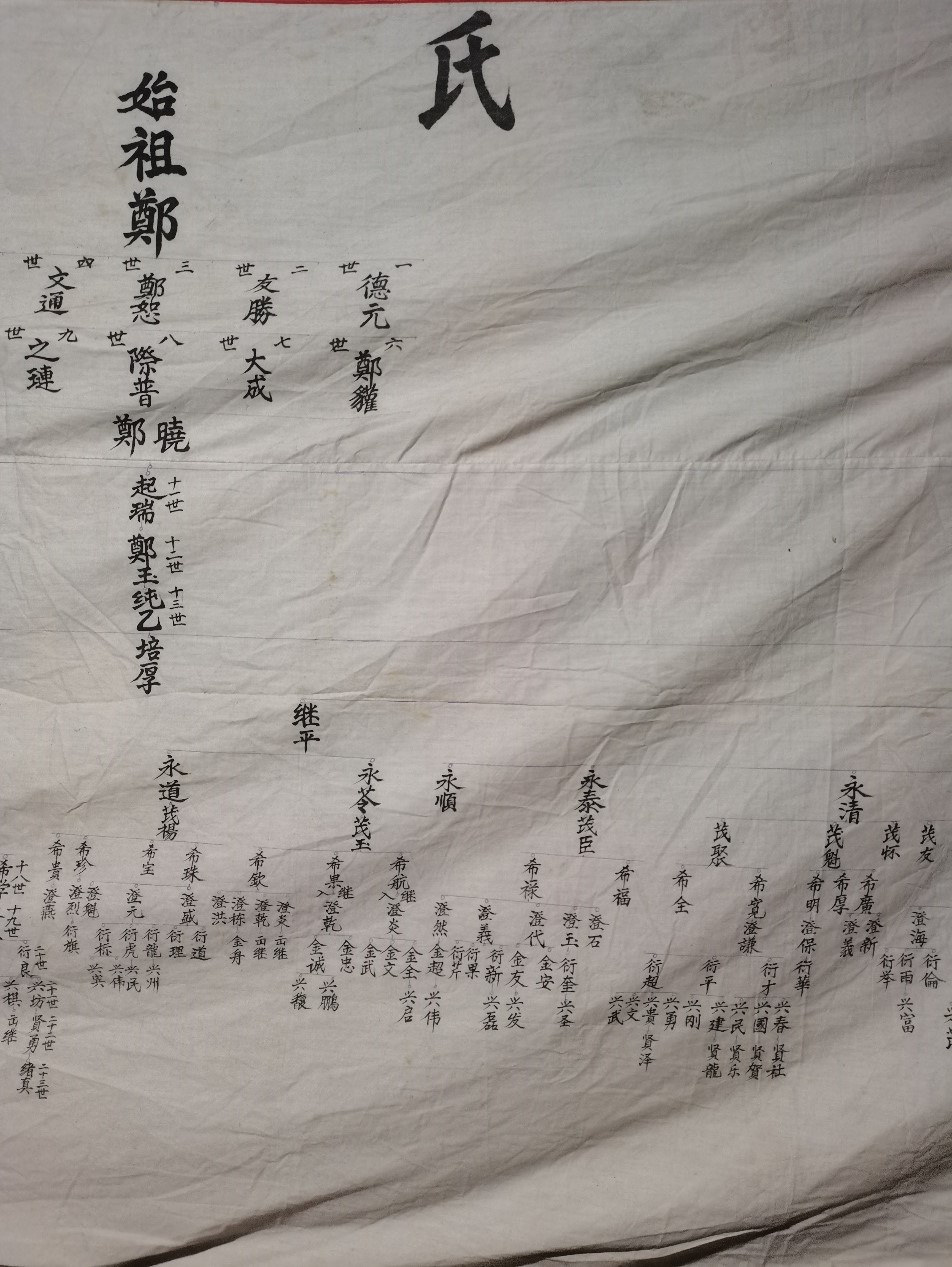 氏
始祖鄭
一世 德元
二世 友勝
三世 鄭恕
四世 文通
六世 鄭
七世 大成
八世 際普
九世 之璉
鄭曉
十一世 起瑞
十二世 鄭玉
十三世 纯乙
培厚
继平
永清 永泰茂臣 永順 永苓茂玉 永道茂楊
茂友 茂怀 茂魁 茂聚
希廣 希厚 希明 希寬 希全 希福 希禄 希航继 希果继 希欽 希珠 希宝 希珍 希貴 十八世
澄海 澄新 澄義 澄保 澄謙 澄石 澄玉 澄代 澄義 澄然 入澄炎 入澄乾 澄炎 澄乾 澄栋 澄洪 澄盛 澄元 澄魁 澄烈 澄燕 十九世
衍倫 衍雨 衍举 衍華 衍才 衍平 衍超 衍奎 金安 金友 衍新 衍果 衍芹 金超 金全 金文 金武 金忠 金誠 出继 出继 金舟 衍道 衍理 衍龍 衍虎 衍栋 衍旗 二十世 衍良
兴富 兴春 兴國 兴民 兴建 兴刚 兴勇 兴贵 兴文 兴武 兴圣 兴发 兴磊 兴伟 兴启 兴鹏 兴稳 兴州 兴民 兴伟 兴昊 二十世 兴坊 兴棋 出继
贤社 贤賀 贤乐 贤龍 贤泽 二十二世 贤勇
二十三世 绪真